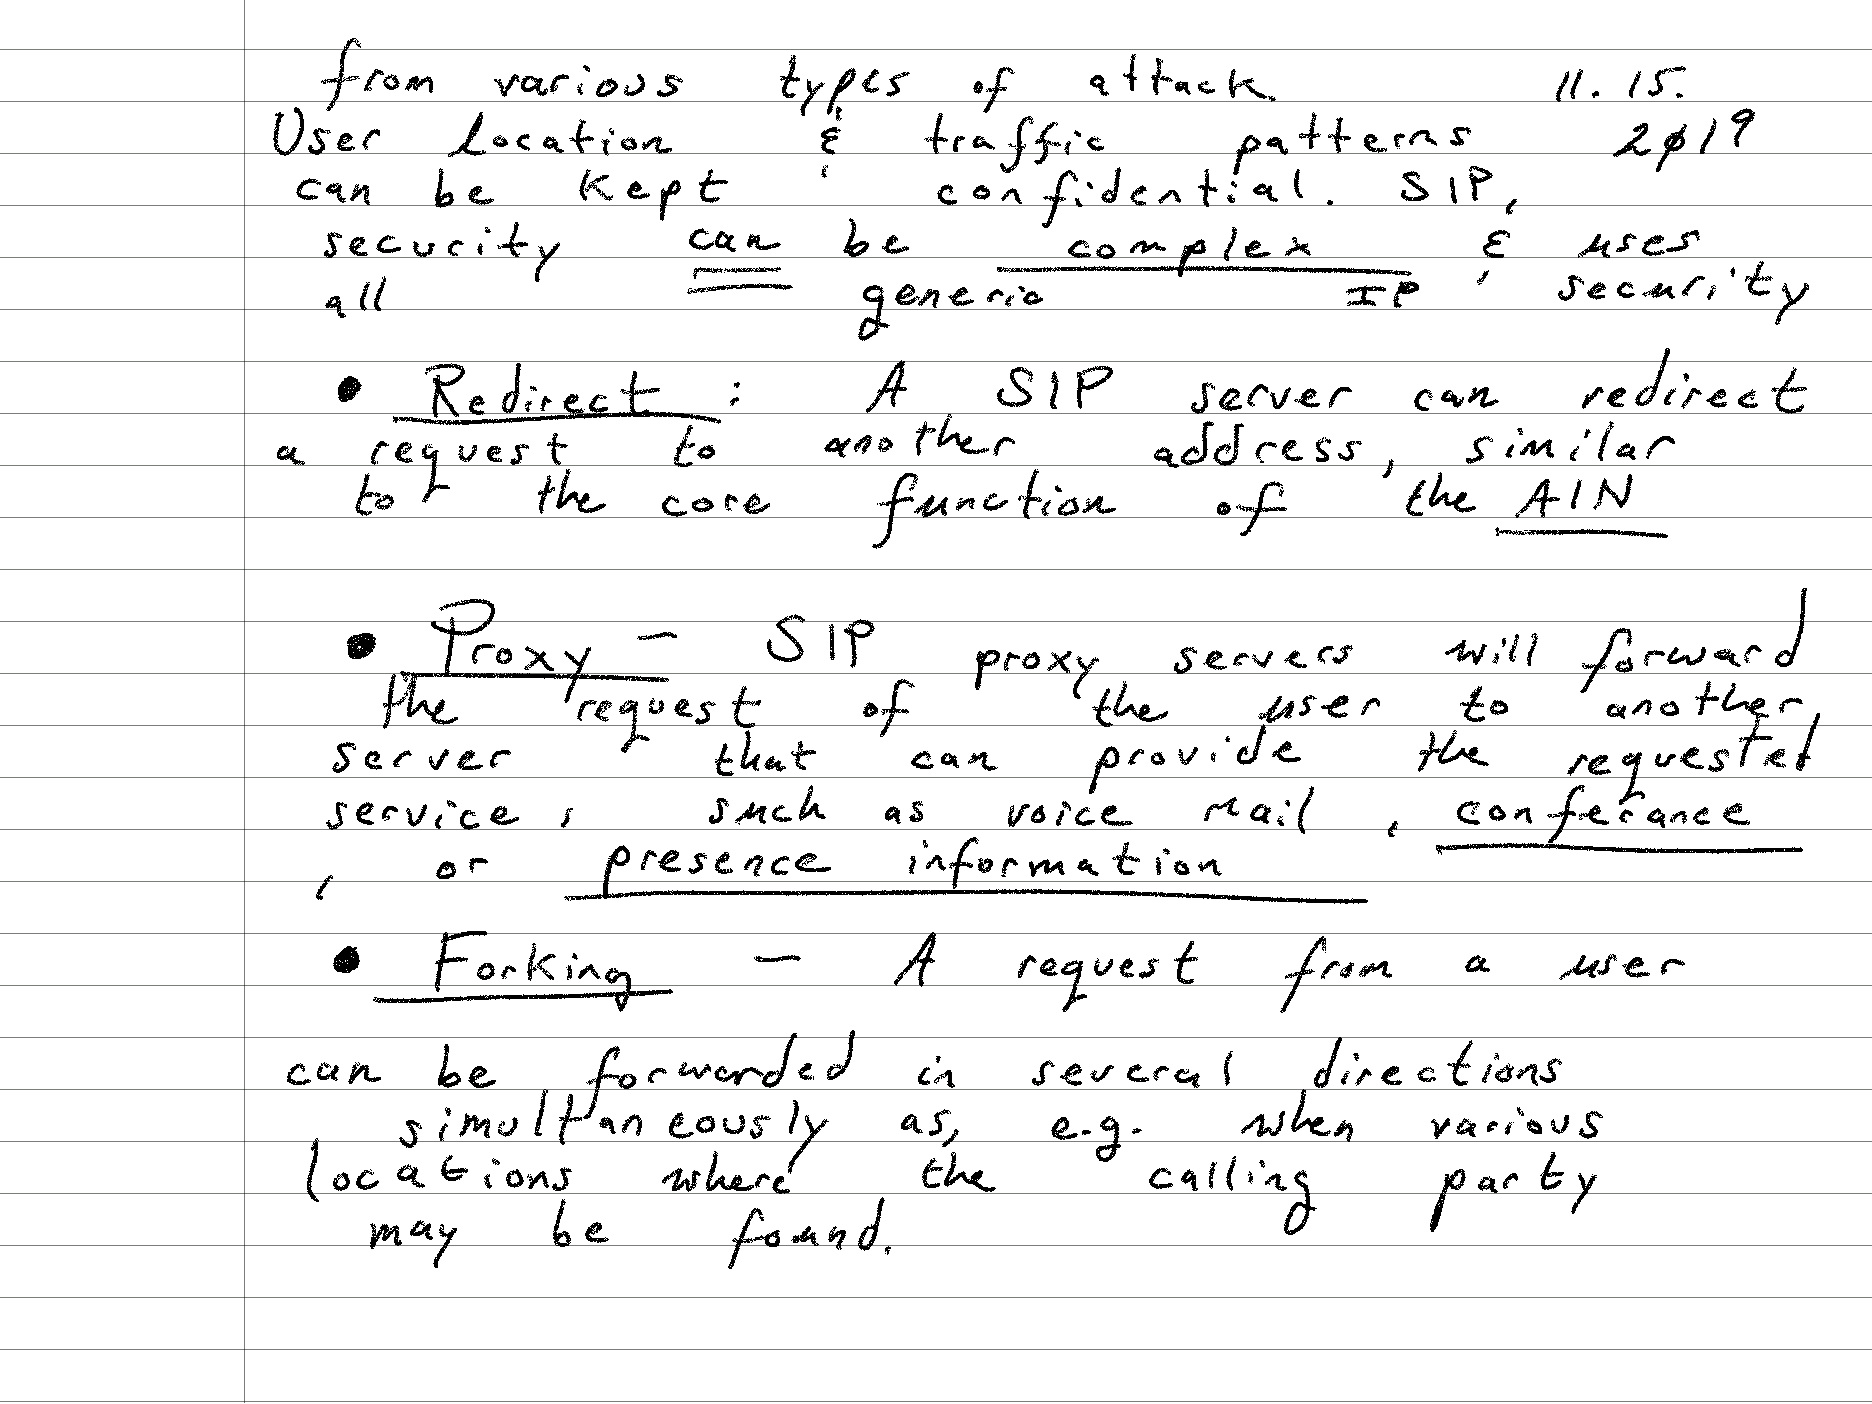 from various types of attack. 11.15.
User Location & traffic patterns 2019
can be kept confidential. SIP,
security can be complex & uses
all generic IP security
• Redirect : A SIP server can redirect
a request to another address, similar
to the core function of the AIN
• Proxy — SIP proxy servers will forward
the request of the user to another
server that can provide the requested
service, such as voice mail, conferance
, or presence information
• Forking — A request from a user
can be forwarded in several directions
simultaneously as, e.g. when various
locations where the calling party
may be found.